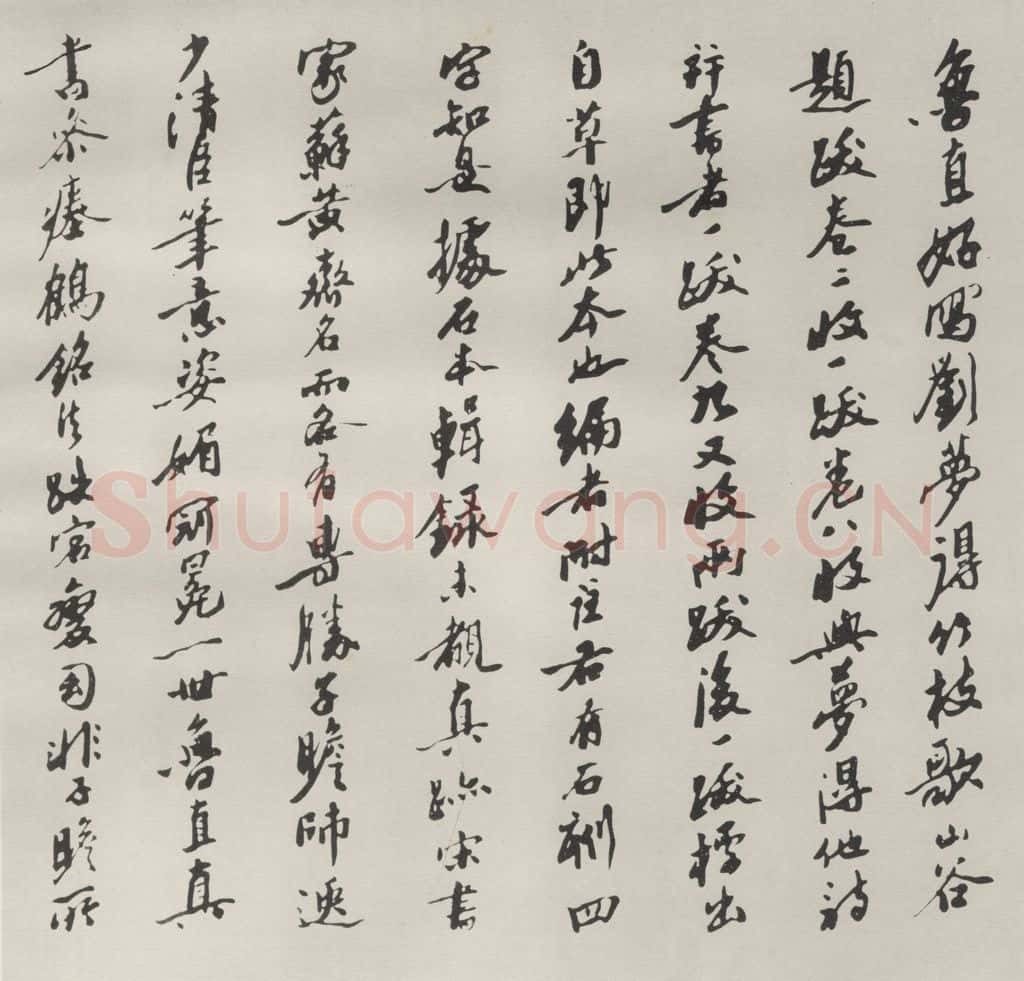 魯直好寫劉夢得竹枝歌山谷
題跋卷二收一跋卷八收與夢得他詩
並書者一跋卷九又收兩跋後一跋標出
自草即此本也編者附注云有石刻四
字知是據石本輯錄未覩真跡宋書
家蘇黃齊名而各有專勝子瞻師遜
少清臣筆意姿媚前冕一世魯直真
書參瘞鶴銘法跌宕奇非子瞻所
Shufawang.CN